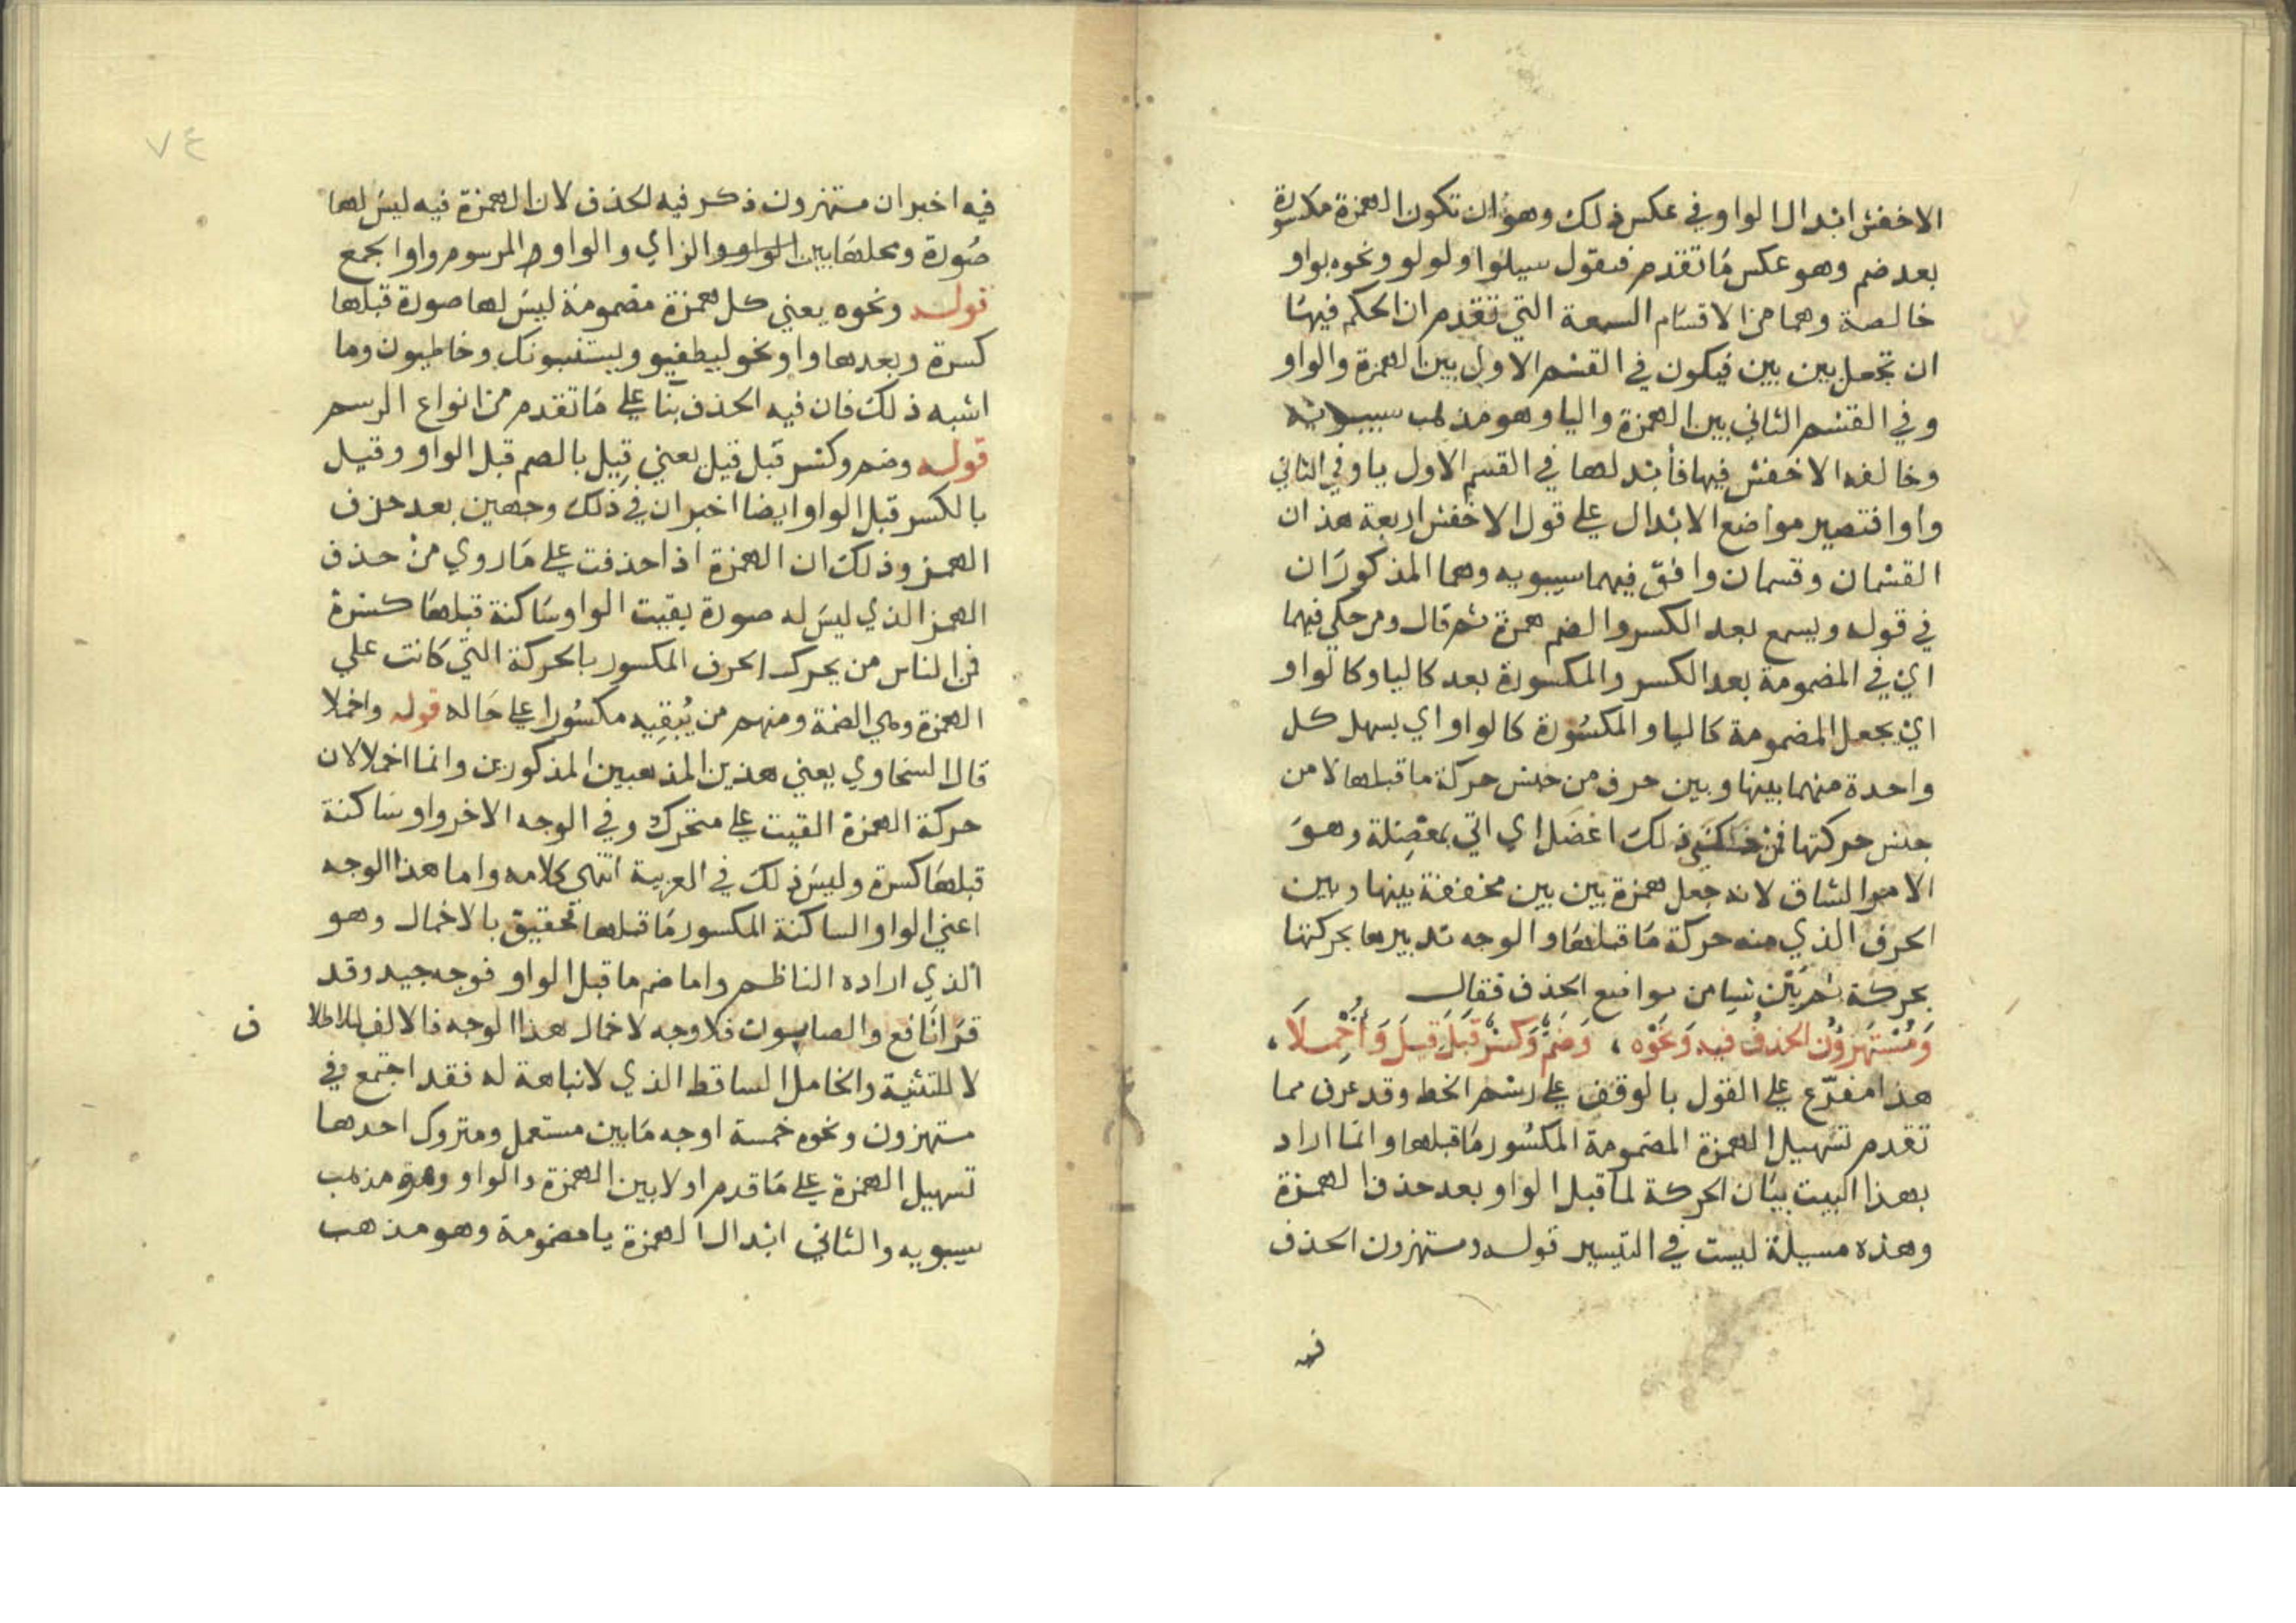 الاخفش ابدال الواو وفي عكس ذلك وهو ان تكون الهمزة مكسورة
بعد ضم وهو عكس ما تقدم فنقول سيلوا ولولو ونحوه بواو
خالصة وهما من الاقسام السبعة التي تقدم ان الحكم فيها
ان تجعل بين بين فيكون في القسم الاول بين الهمزة والواو
وفي القسم الثاني بين الهمزة واليا وهو مذهب سيبويه
وخالفه الاخفش فيها فأبدلها في القسم الاول يا وفي الثاني
واوا فتصير مواضع الابدال على قول الاخفش اربعة هذان
القسمان وقسمان وافق فيهما سيبويه وهما المذكوران
في قوله ويسمع بعد الكسر والضم همزة ثم قال ومن حكى فيهما
اي في المضمومة بعد الكسر والمكسورة بعد كاليا وكالواو
اي يجعل المضمومة كاليا والمكسورة كالواو اي يسهل كل
واحدة منهما بينها وبين حرف من جنس حركة ما قبلها لا من
جنس حركتها فمن حكى ذلك اعضل اي اتى بمعضلة وهو
الامر الشاق لانه جعل همزة بين بين مخففة بينها وبين
الحرف الذي منه حركة ما قبلها والوجه تدبيرها بحركتها
بحركة ثم بيّن شيا من مواضع الحذف فقال
وَمُسْتَهزِوُن الحذفُ فيهِ وَنَحْوْه ، وَضَمٌّ وَكَسْرٌ قَبْلَ قِيلَ وَأُخْمِلَا ،
هذا مفرّع على القول بالوقف على رسم الخط وقد عرف مما
تقدم تسهيل الهمزة المضمومة المكسور ما قبلها وانما اراد
بهذا البيت بيان الحركة لما قبل الواو بعد حذف الهمزة
وهذه مسيلة ليست في التيسير قوله ومستهزون الحذف
فيه
٧٤
فيه اخبر ان مستهزون ذكر فيه الحذف لان الهمزة فيه ليس لها
صورة ومحلها بين الواو والزاي والواو والمرسوم واوا لجمع
قوله ونحوه يعني كل همزة مضمومة ليس لها صورة قبلها
كسرة وبعدها واو نحو ليطفيو ويستنبونك وخاطيون وما
اشبه ذلك فان فيه الحذف بنا على ما تقدم من انواع الرسم
قوله وضم وكسر قبل قيل يعني قيل بالضم قبل الواو وقيل
بالكسر قبل الواو ايضا اخبر ان في ذلك وجهين بعد حذف
الهمز وذلك ان الهمزة اذا حذفت على ما روي من حذف
الهمز الذي ليس له صورة بقيت الواو ساكنة قبلها كسرة
فمن الناس من يحرك الحرف المكسور بالحركة التي كانت على
الهمزة وهي الضمة ومنهم من يُبْقِيه مكسورا على حاله قوله واخملا
قال السخاوي يعني هذين المذهبين المذكورين وانما اخملا لان
حركة الهمزة القيت على متحرك وفي الوجه الاخر واو ساكنة
قبلها كسرة وليس ذلك في العربية انتهى كلامه واما هذا الوجه
اعني الواو الساكنة المكسور ما قبلها فحقيق بالاخمال وهو
الذي اراده الناظم واما ضم ما قبل الواو فوجه جيد وقد
قرا نافع والصابون فلا وجه لاخمال هذا الوجه فالالف للاطلا
ق
لا للتثنية والخامل الساقط الذي لا نباهة له فقد اجتمع في
مستهزون ونحوه خمسة اوجه ما بين مستعمل ومتروك احدها
تسهيل الهمزة على ما قدم اولا بين الهمزة والواو وهو مذهب
سيبويه والثاني ابدال الهمزة يا مضمومة وهو مذهب